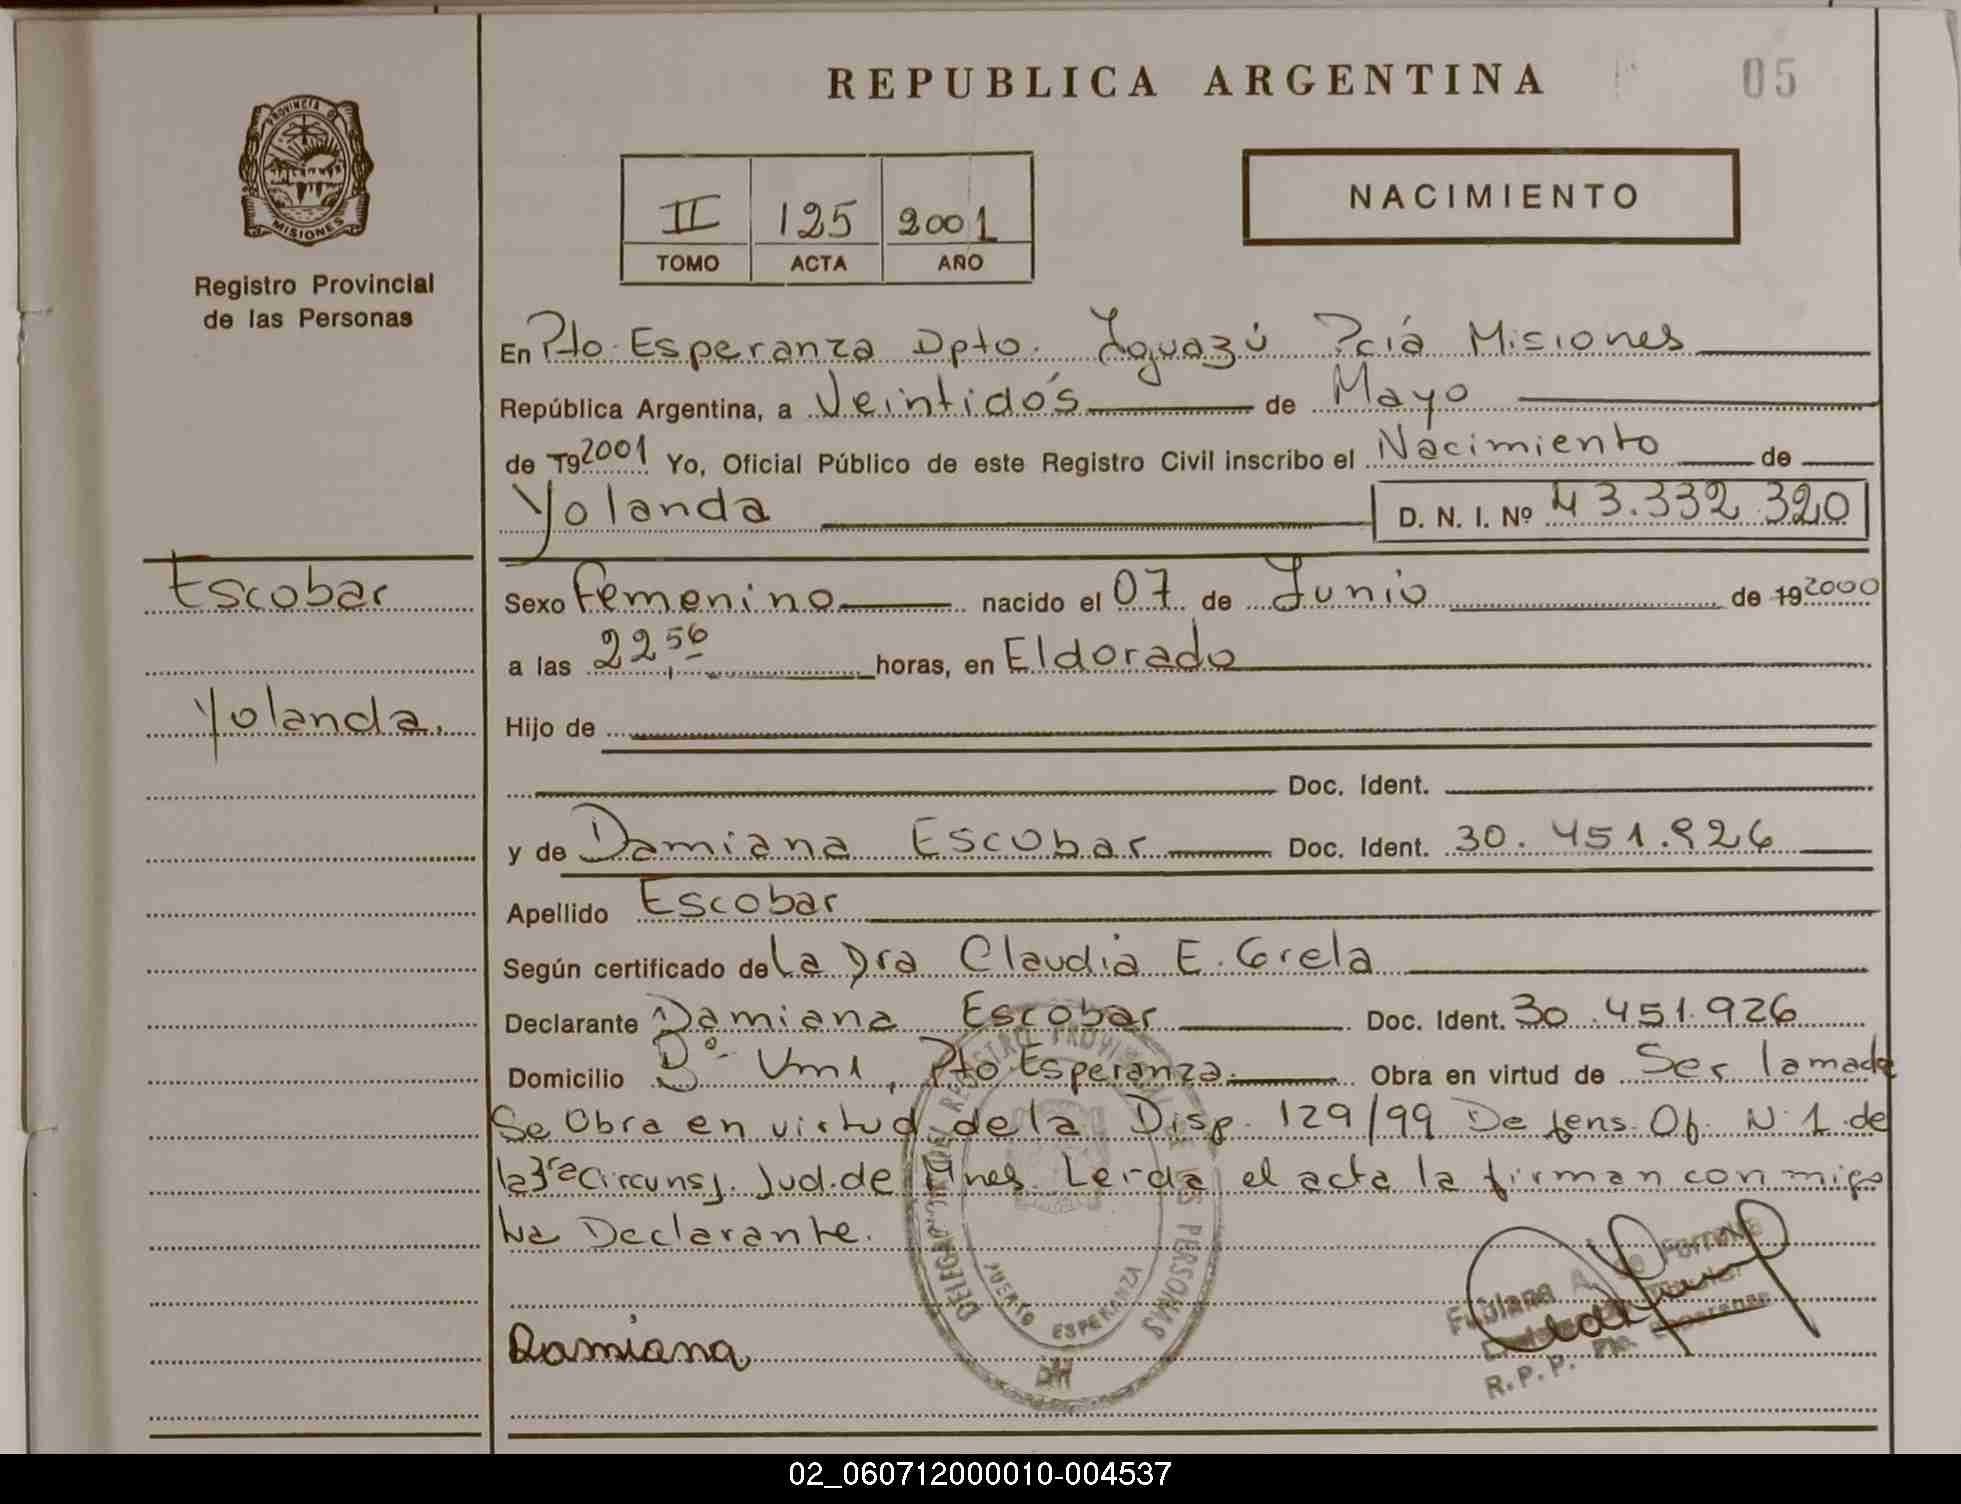 REPUBLICA ARGENTINA
05
PROVINCIA DE
MISIONES
Registro Provincial
de las Personas
II 125 2001
TOMO ACTA AÑO
NACIMIENTO
En Pto. Esperanza Dpto. Iguazú Pciá Misiones
República Argentina, a Veintidós de Mayo
de 192001 Yo, Oficial Público de este Registro Civil inscribo el Nacimiento de
Yolanda D. N. I. Nº 43.332.320
Escobar
Yolanda.
Sexo Femenino nacido el 07 de Junio de 192000
a las 22,56 horas, en Eldorado
Hijo de
Doc. Ident.
y de Damiana Escobar Doc. Ident. 30.451.926
Apellido Escobar
Según certificado de La Dra Claudia E. Grela
Declarante Damiana Escobar Doc. Ident. 30.451.926
Domicilio Bº Vm1, Pto Esperanza. Obra en virtud de Ser la made
Se Obra en virtud de la Disp. 129/99 Defens. Of. N 1 de
la 3ra Circunsj. Jud. de Mnes. Leida el acta la firman con migo
La Declarante.
DELEGACION DEL REGISTRO PROVINCIAL DE LAS PERSONAS
PUERTO ESPERANZA
Damiana
Fabiana A.
R.P.P. Pto. Esperanza
02_060712000010-004537